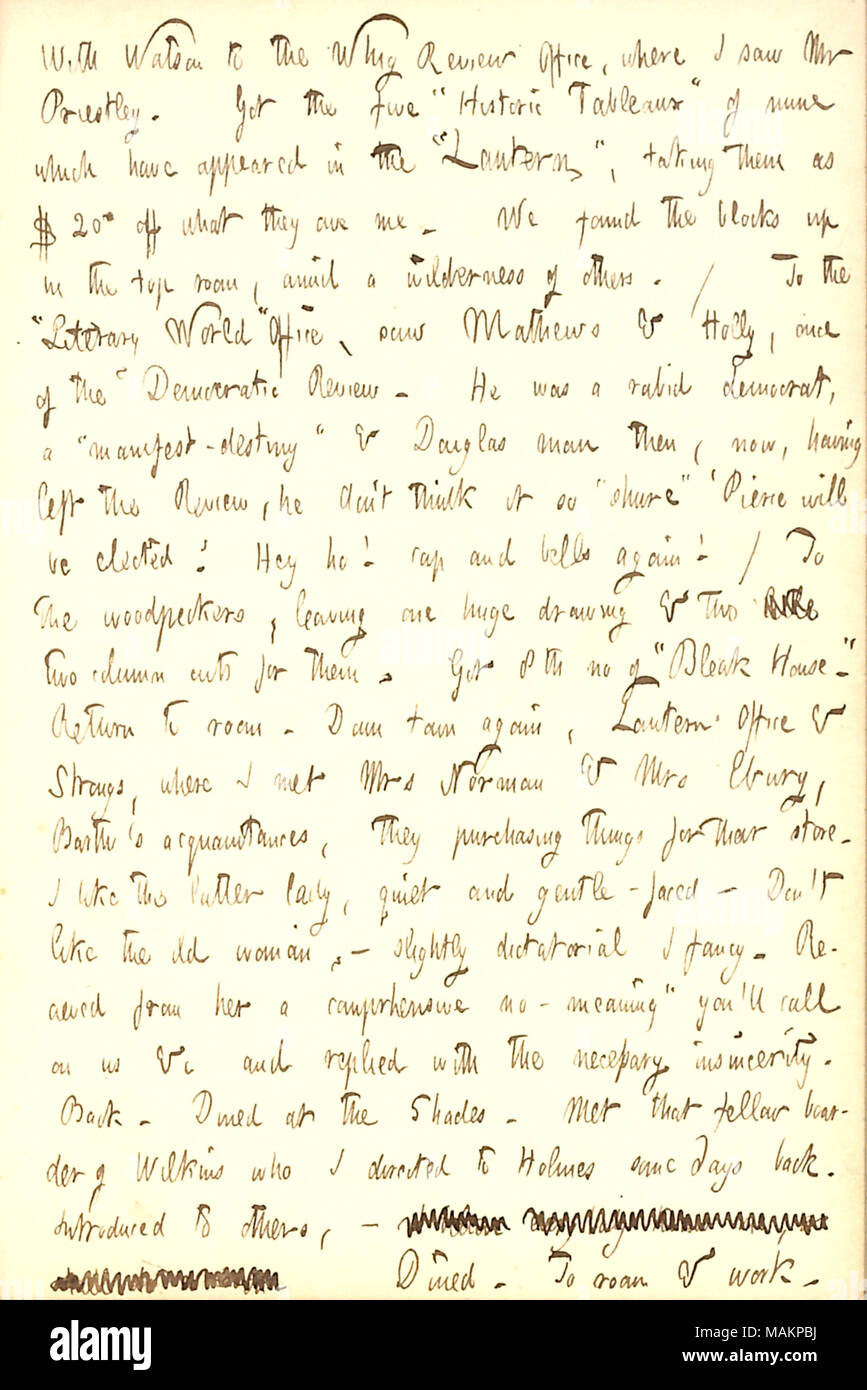 With Watson to the Whig Review Office, where I saw Mr
Priestley. Got the five "Historic Tableaux" of mine
which have appeared in the "Lantern", taking them as
$20 off what they owe me. We found the blocks up
in the top room, amid a wilderness of others. / To the
"Literary World" Office, saw Mathews & Holly, once
of the Democratic Review. He was a rabid democrat,
a "manifest-destiny" & Douglas man then, now, having
left the Review, he don't think it so "shure" 'Pierce will
be elected! Hey ho! cap and bells again! / To
the woodpeckers, leaving one huge drawing & two
two column cuts for them. Got 8th no of "Bleak House."
Return to room. Down town again, Lantern Office &
Strongs, where I met Mrs Norman & Mrs Ebury,
Barth's acquaintances, they purchasing things for their store.
I like the latter lady, quiet and gentle-faced - Don't
like the old woman, - slightly dictatorial I fancy. Re-
ceived from her a comprhensive no-meaning "you'll call
on us &c and replied with the necessary insincerity.
Back. Dined at the Shades. Met that fellow boar-
der of Wilkins who I directed to Holmes some days back.
Introduced to others, -
Dined. To room & work.
alamy
Image ID: MAKPBJ
www.alamy.com